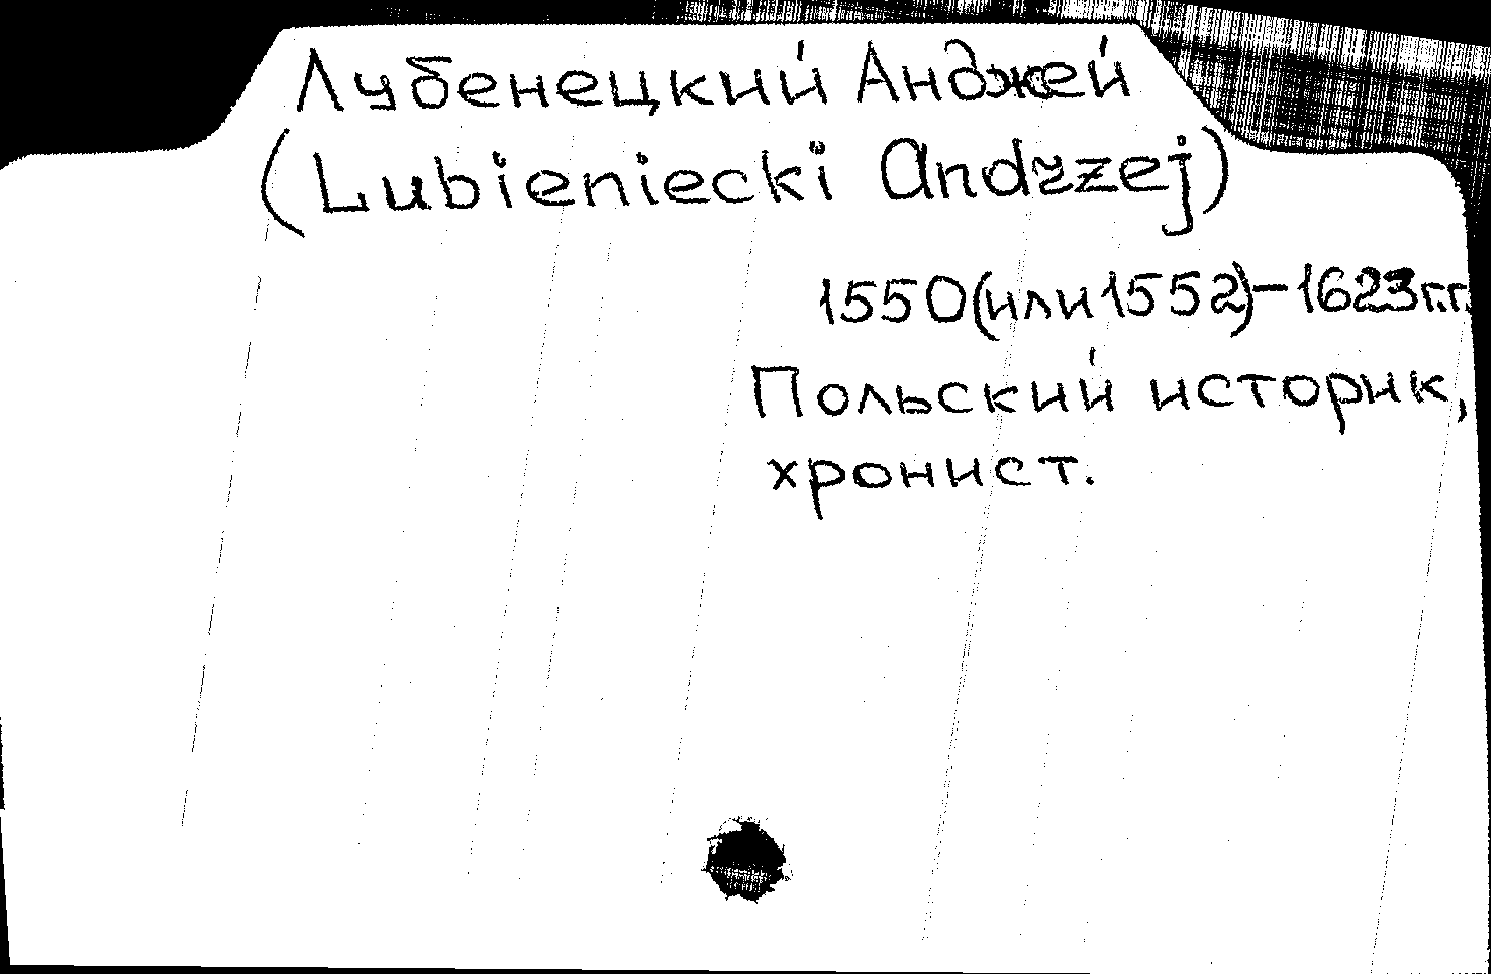 Лубенецкий Анджей
(Lubieniecki Andrzej)
1550(или 1552)-1623г.г.
Польский историк,
хронист.